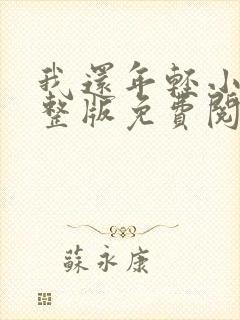 我還年輕小
整版免費閱
蘇永康